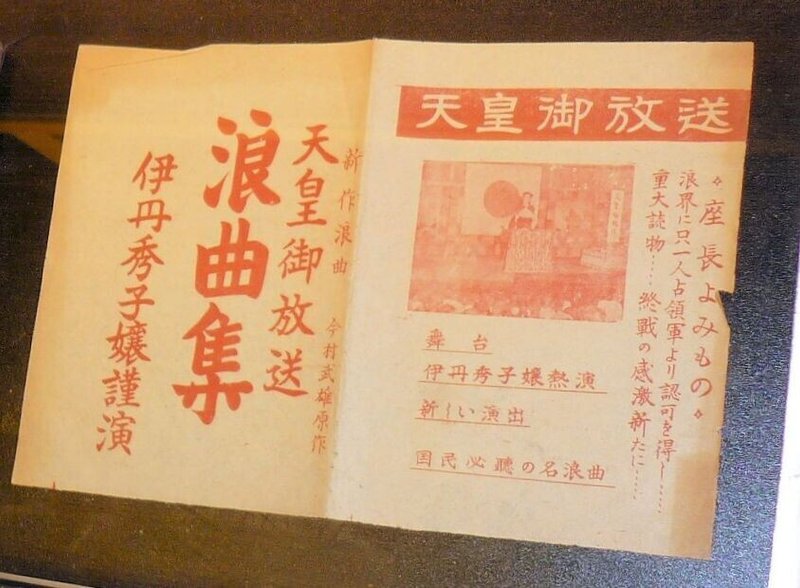 天皇御放送
◇座長よみもの◇
浪界に只一人占領軍より認可を得し……
重大読物…… 終戦の感激新たに……
舞台
伊丹秀子嬢熱演
新しい演出
国民必聴の名浪曲
新作浪曲 今村武雄原作
天皇御放送
浪曲集
伊丹秀子嬢謹演